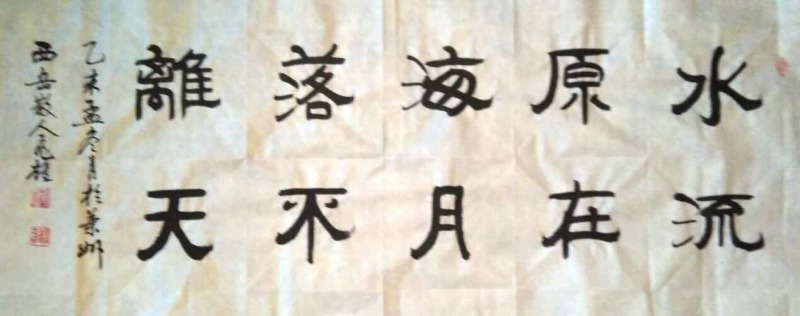 水流
原在
海月
落不
離天
乙未孟冬月於華州
西岳散人